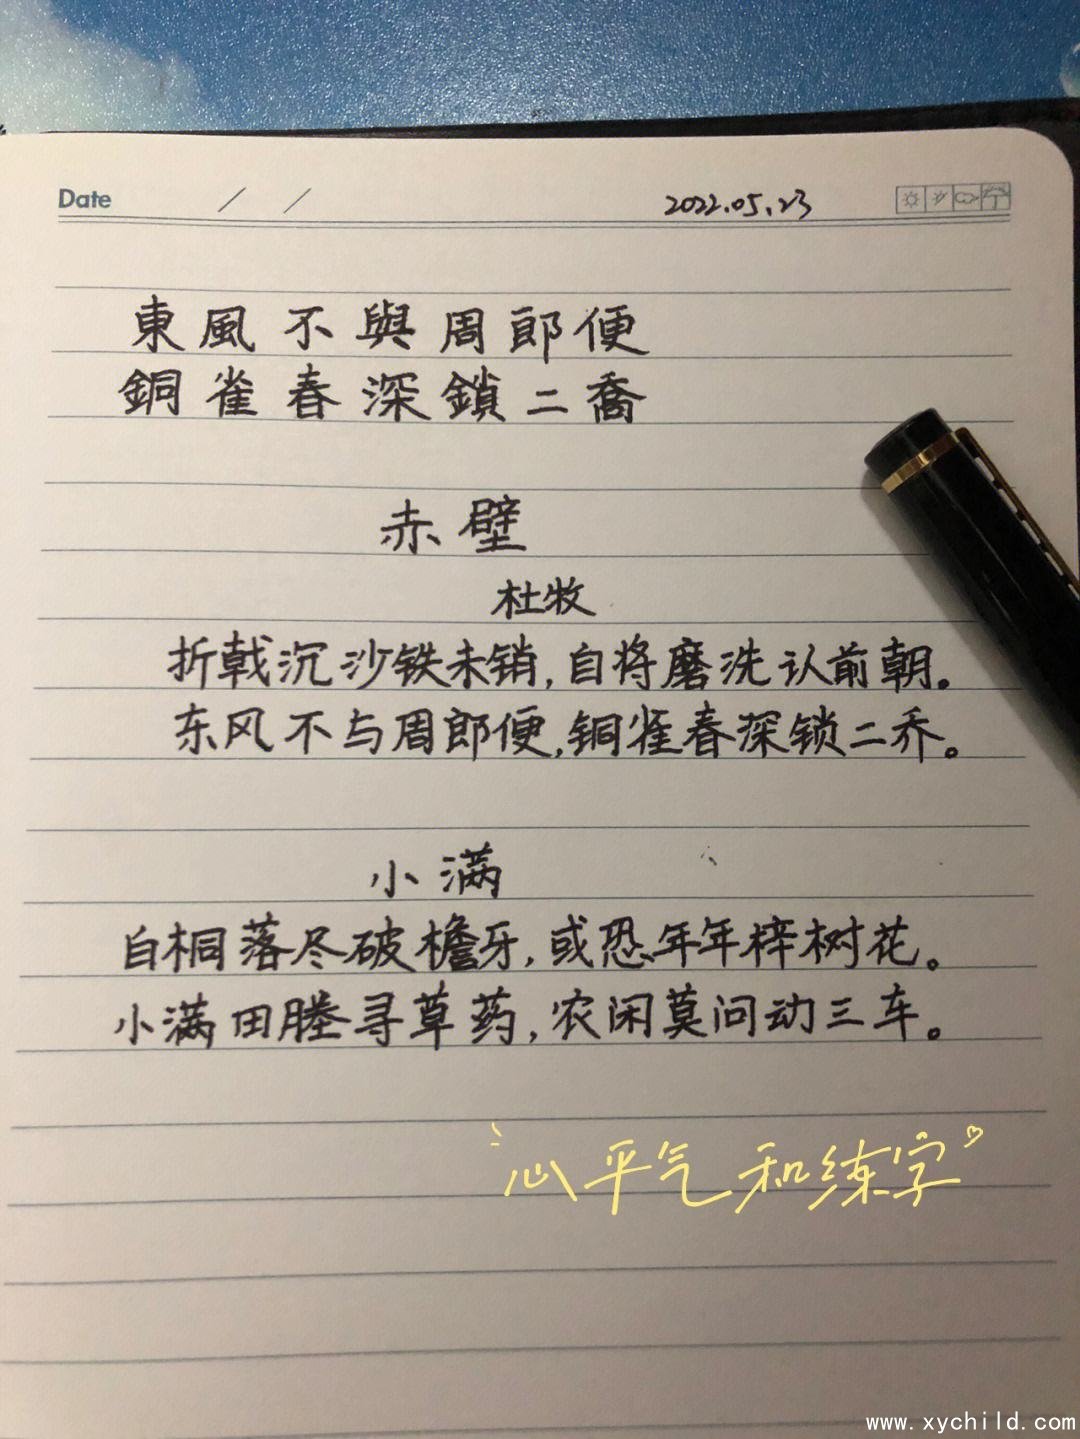 Date / / 2022.05.23
東風不與周郎便
銅雀春深鎖二喬
赤壁
杜牧
折戟沉沙铁未销,自将磨洗认前朝。
东风不与周郎便,铜雀春深锁二乔。
小满
白桐落尽破檐牙,或恐年年梓树花。
小满田塍寻草药,农闲莫问动三车。
心平气和练字
www.xychild.com